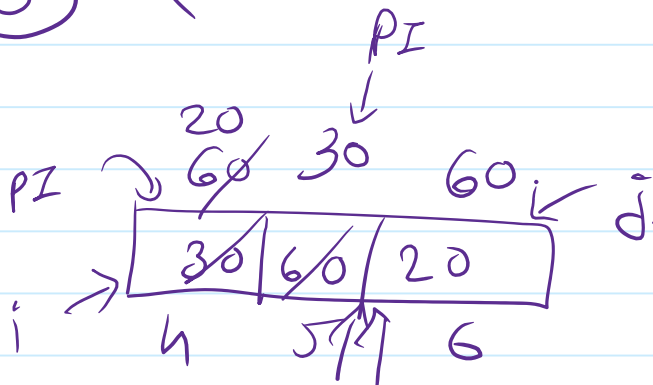 PI
20
60 30 60
PI j
30 60 20
i
4 5 6